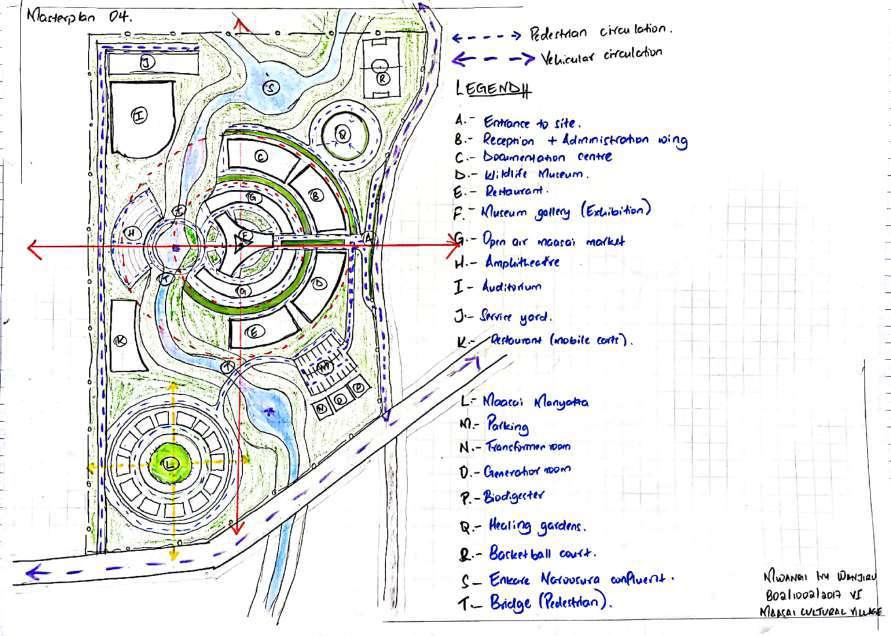 Masterplan 04.
Pedestrian circulation.
Vehicular circulation
LEGEND
A.- Entrance to site.
B.- Reception + Administration wing
C.- Documentation centre
D.- Wildlife Museum.
E.- Restaurant.
F.- Museum gallery (Exhibition)
G.- Open air maasai market
H.- Amphitheatre
I.- Auditorium
J.- Service yard.
K.- Restaurant (mobile carts).
L.- Maasai Manyatta
M.- Parking
N.- Transformer room
O.- Generator room
P.- Biodigester
Q.- Healing gardens.
R.- Basketball court.
S.- Enkare Narousura confluent.
T.- Bridge (Pedestrian).
J
I
S
R
Q
C
B
G
T
H
F
A
T
G
D
K
E
T
M
N
O
L
MAASAI CULTURAL VILLAGE